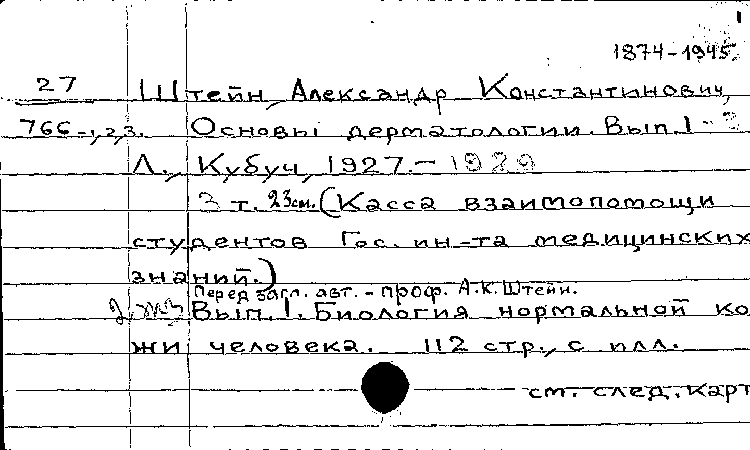 1874-1945.
27 Штейн, Александр Константинович,
766-1,2,3. Основы дерматологии. Вып. 1-3
Л., Кубуч, 1927.-1929
3 т. 23см. (Касса взаимопомощи
студентов Гос. ин-та медицинских
знаний.)
Перед загл. авт. - проф. А.К. Штейн.
Вып. 1. Биология нормальной ко
жи человека. 112 стр., с илл.
см. след. карт